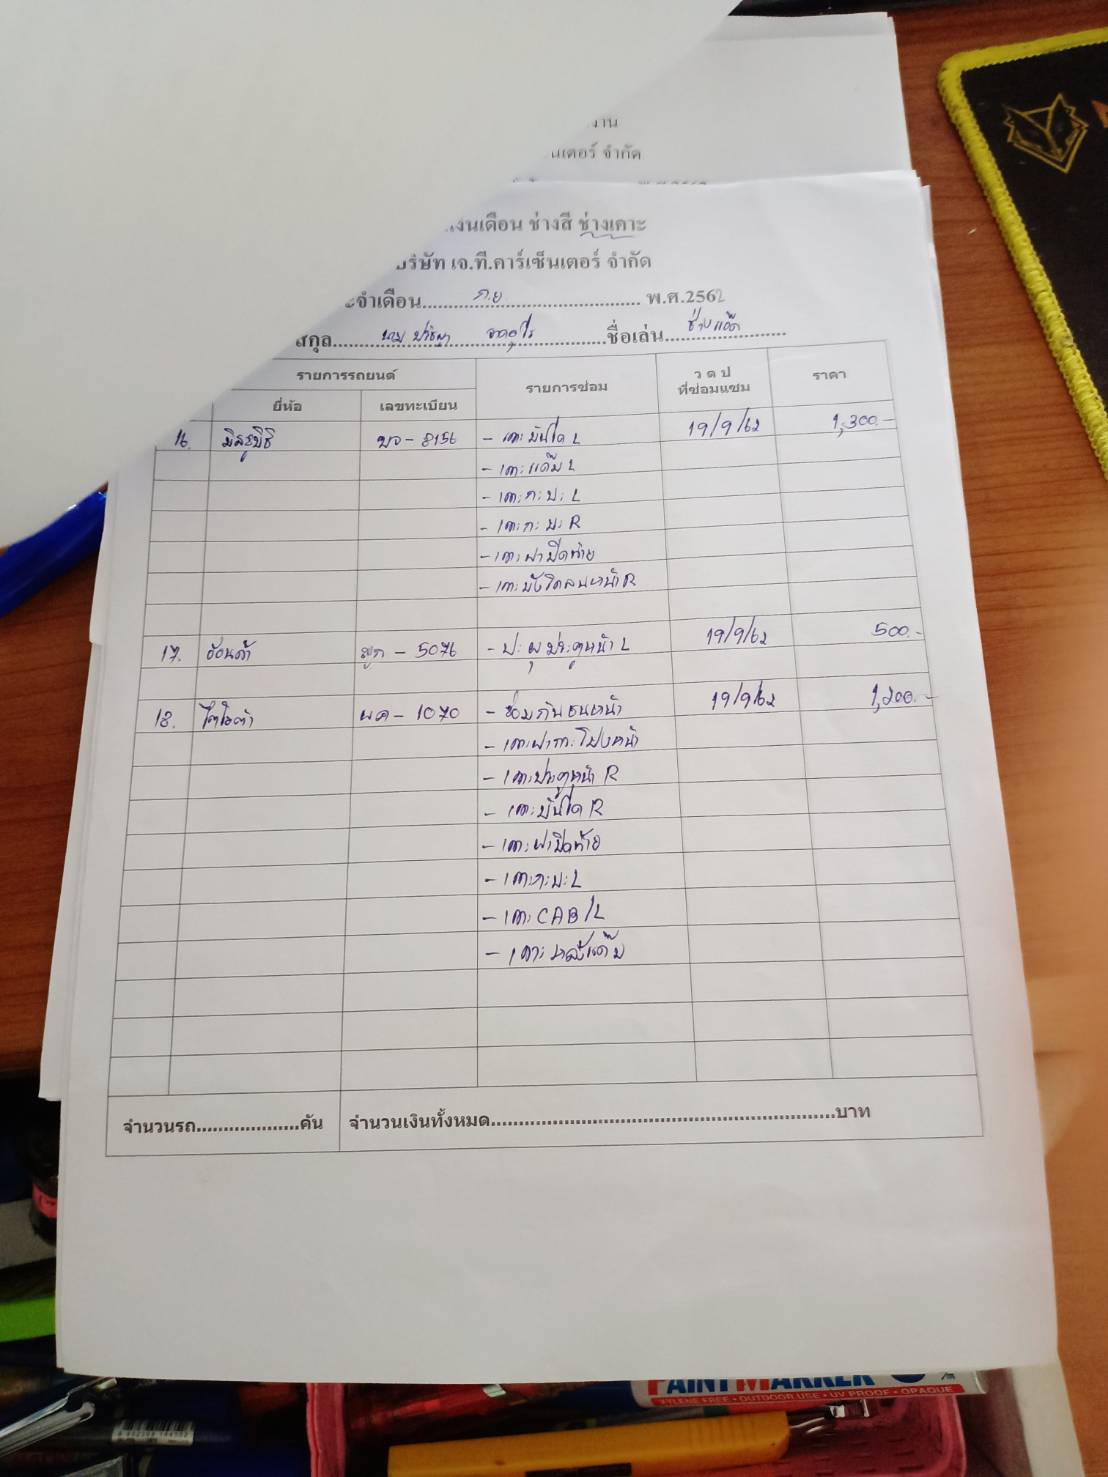 งาน
นเตอร์ จำกัด
งินเดือน ช่างสี ช่างเคาะ
บริษัท เจ.ที.คาร์เซ็นเตอร์ จำกัด
ะจำเดือน ก.ย พ.ศ.2562
สกุล นาย ชื่อเล่น ช่างแอ๊ด
รายการรถยนต์ รายการซ่อม ว ด ป ที่ซ่อมแซม ราคา
ยี่ห้อ เลขทะเบียน
16. มิตซูบิชิ บจ - 8156 - เคาะบันได L 19/9/62 1,300.-
- เคาะแค๊ป L
- เคาะกะบะ L
- เคาะกะบะ R
- เคาะฝาปิดท้าย
- เคาะบังโคลนหน้า R
17. ฮอนด้า - 5076 - ปะผุประตูหน้า L 19/9/62 500.-
18. โตโยต้า ผค - 1070 - ซ่อมกันชนหน้า 19/9/62 1,200.-
- เคาะฝากระโปงหน้า
- เคาะประตูหน้า R
- เคาะบันได R
- เคาะฝาปิดท้าย
- เคาะกะบะ L
- เคาะ CAB/L
- เคาะหลังแค๊ป
จำนวนรถ คัน จำนวนเงินทั้งหมด บาท
PAINT MARKER
XYLENE FREE • OUTDOOR USE • UV PROOF • OPAQUE